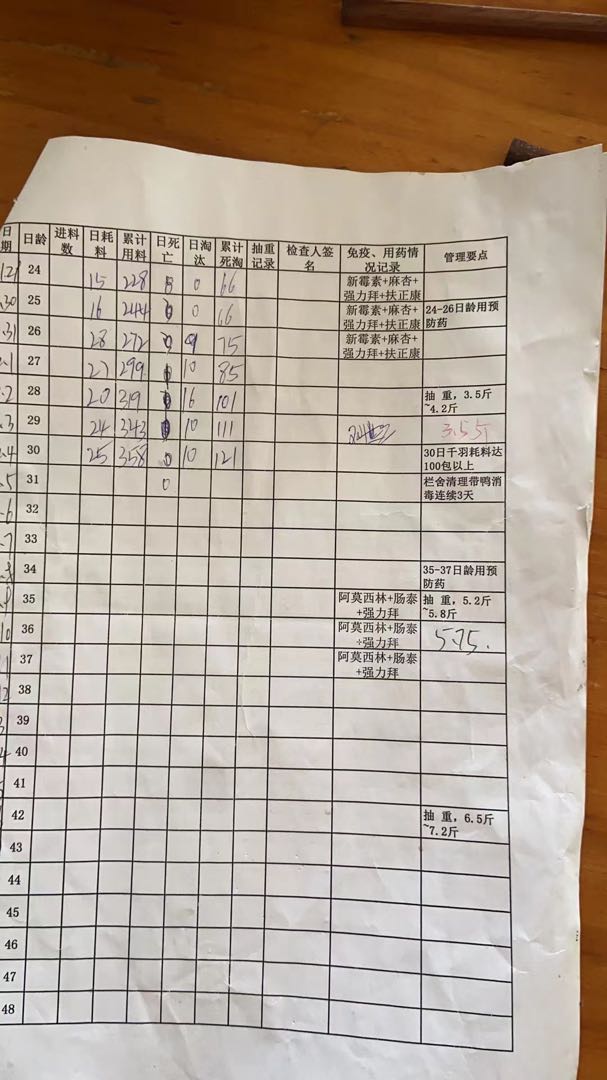 日期 日龄 进料数 日耗料 累计用料 日死亡 日淘汰 累计死淘 抽重记录 检查人签名 免疫、用药情况记录 管理要点
24 15 228 0 66 新霉素+麻杏+强力拜+扶正康
.30 25 16 244 0 66 新霉素+麻杏+强力拜+扶正康 24-26日龄用预防药
.31 26 28 272 9 75 新霉素+麻杏+强力拜+扶正康
.1 27 27 299 10 85
.2 28 20 319 16 101 抽 重，3.5斤~4.2斤
.3 29 24 343 10 111 3.5斤
.4 30 25 358 0 10 121 30日千羽耗料达100包以上
.5 31 0 栏舍清理带鸭消毒连续3天
.6 32
.7 33
34 35-37日龄用预防药
35 阿莫西林+肠泰+强力拜 抽 重，5.2斤~5.8斤
10 36 阿莫西林+肠泰+强力拜 5.75.
37 阿莫西林+肠泰+强力拜
38
39
40
41
42 抽 重，6.5斤~7.2斤
43
44
45
46
47
48